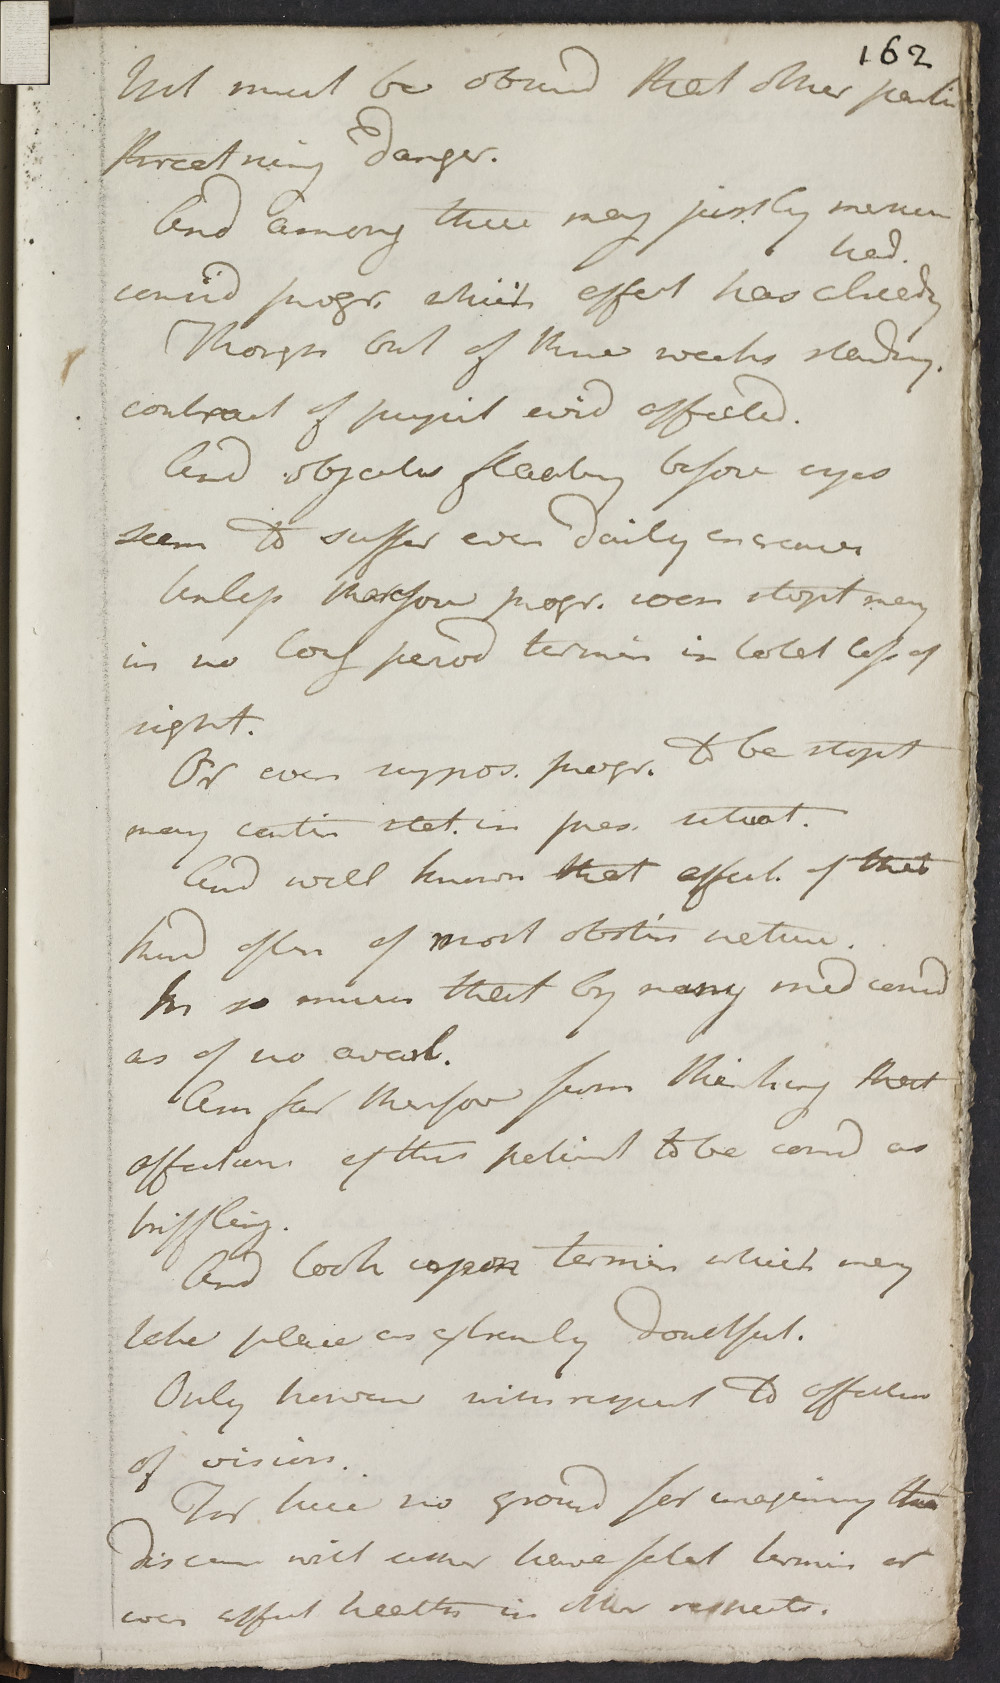 162
But must be observd that other partic
threatning danger.
And among these may justly mention
had.
consid progr. which affect has already
Though but of three weeks standing.
contract of pupil evid affected.
And objects floating before eyes
seem to suffer even daily increase
Unless therefore progr. soon stopt may
in no long period termin in total loss of
sight.
Or even suppos. progr. to be stopt
may contin stat. in pres. situat.
And well known that affect. of this
kind often of most obstin nature.
In so much that by many med consid
as of no avail.
Am far therefore from thinking that
affections of this patient to be consd as
triffling.
And look upon termin which may
take place as extremly doubtful.
Only however with respect to affection
of vision.
For here no ground for imagining that
disease will either have fatal termin or
even affect health in other respects.